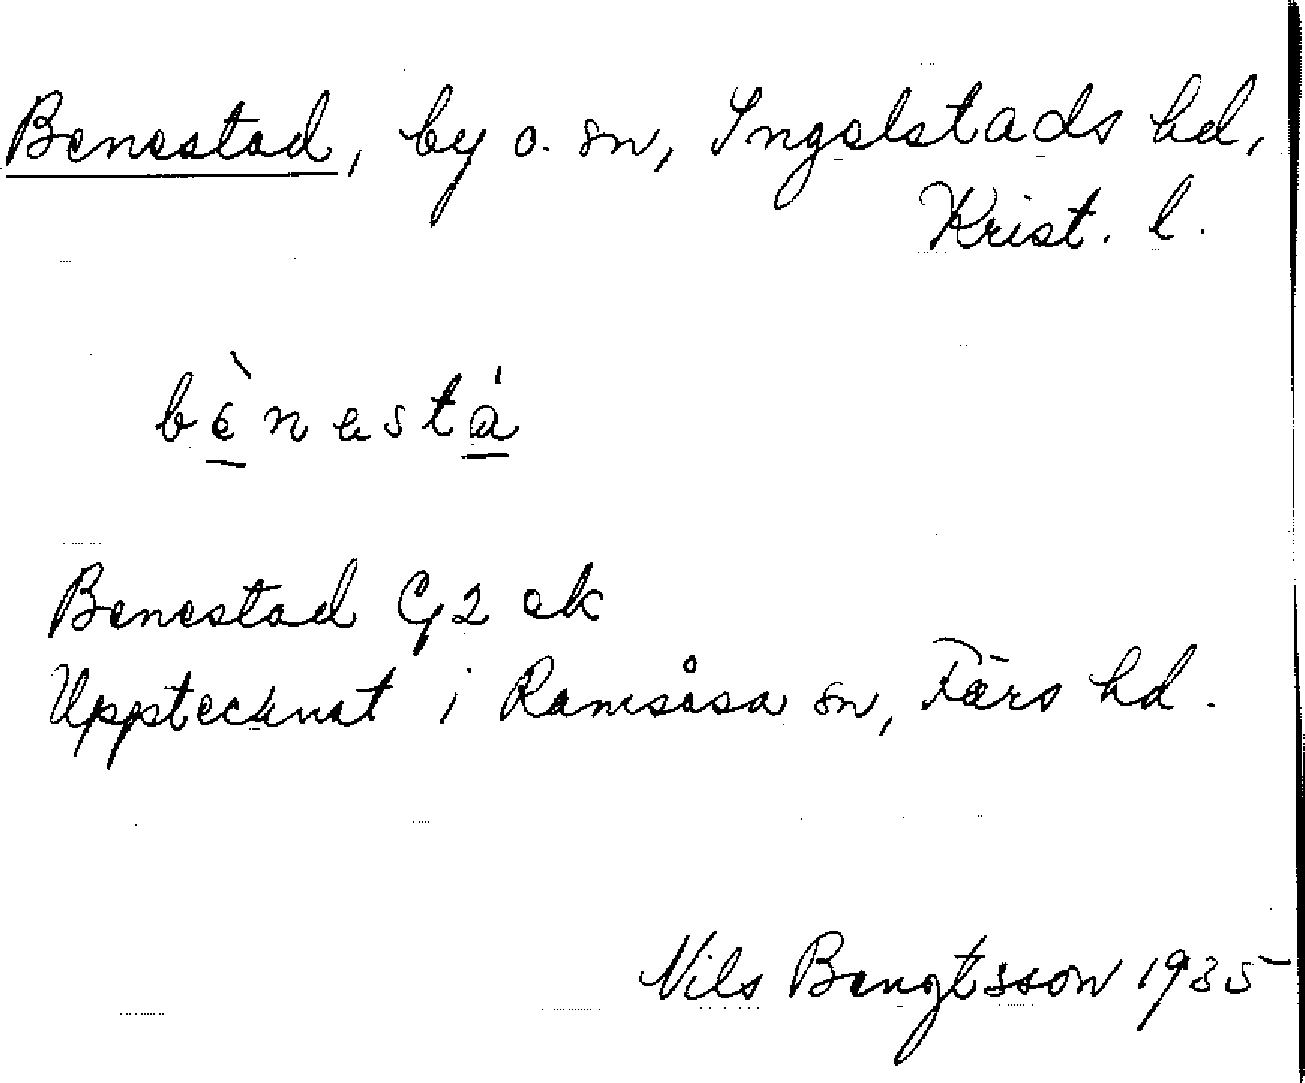 Benestad, by o. sn, Ingelstads hd,
Krist. l.
bènestá
Benestad G2 ek
Upptecknat i Ramsåsa sn, Färs hd.
Nils Bengtsson 1935